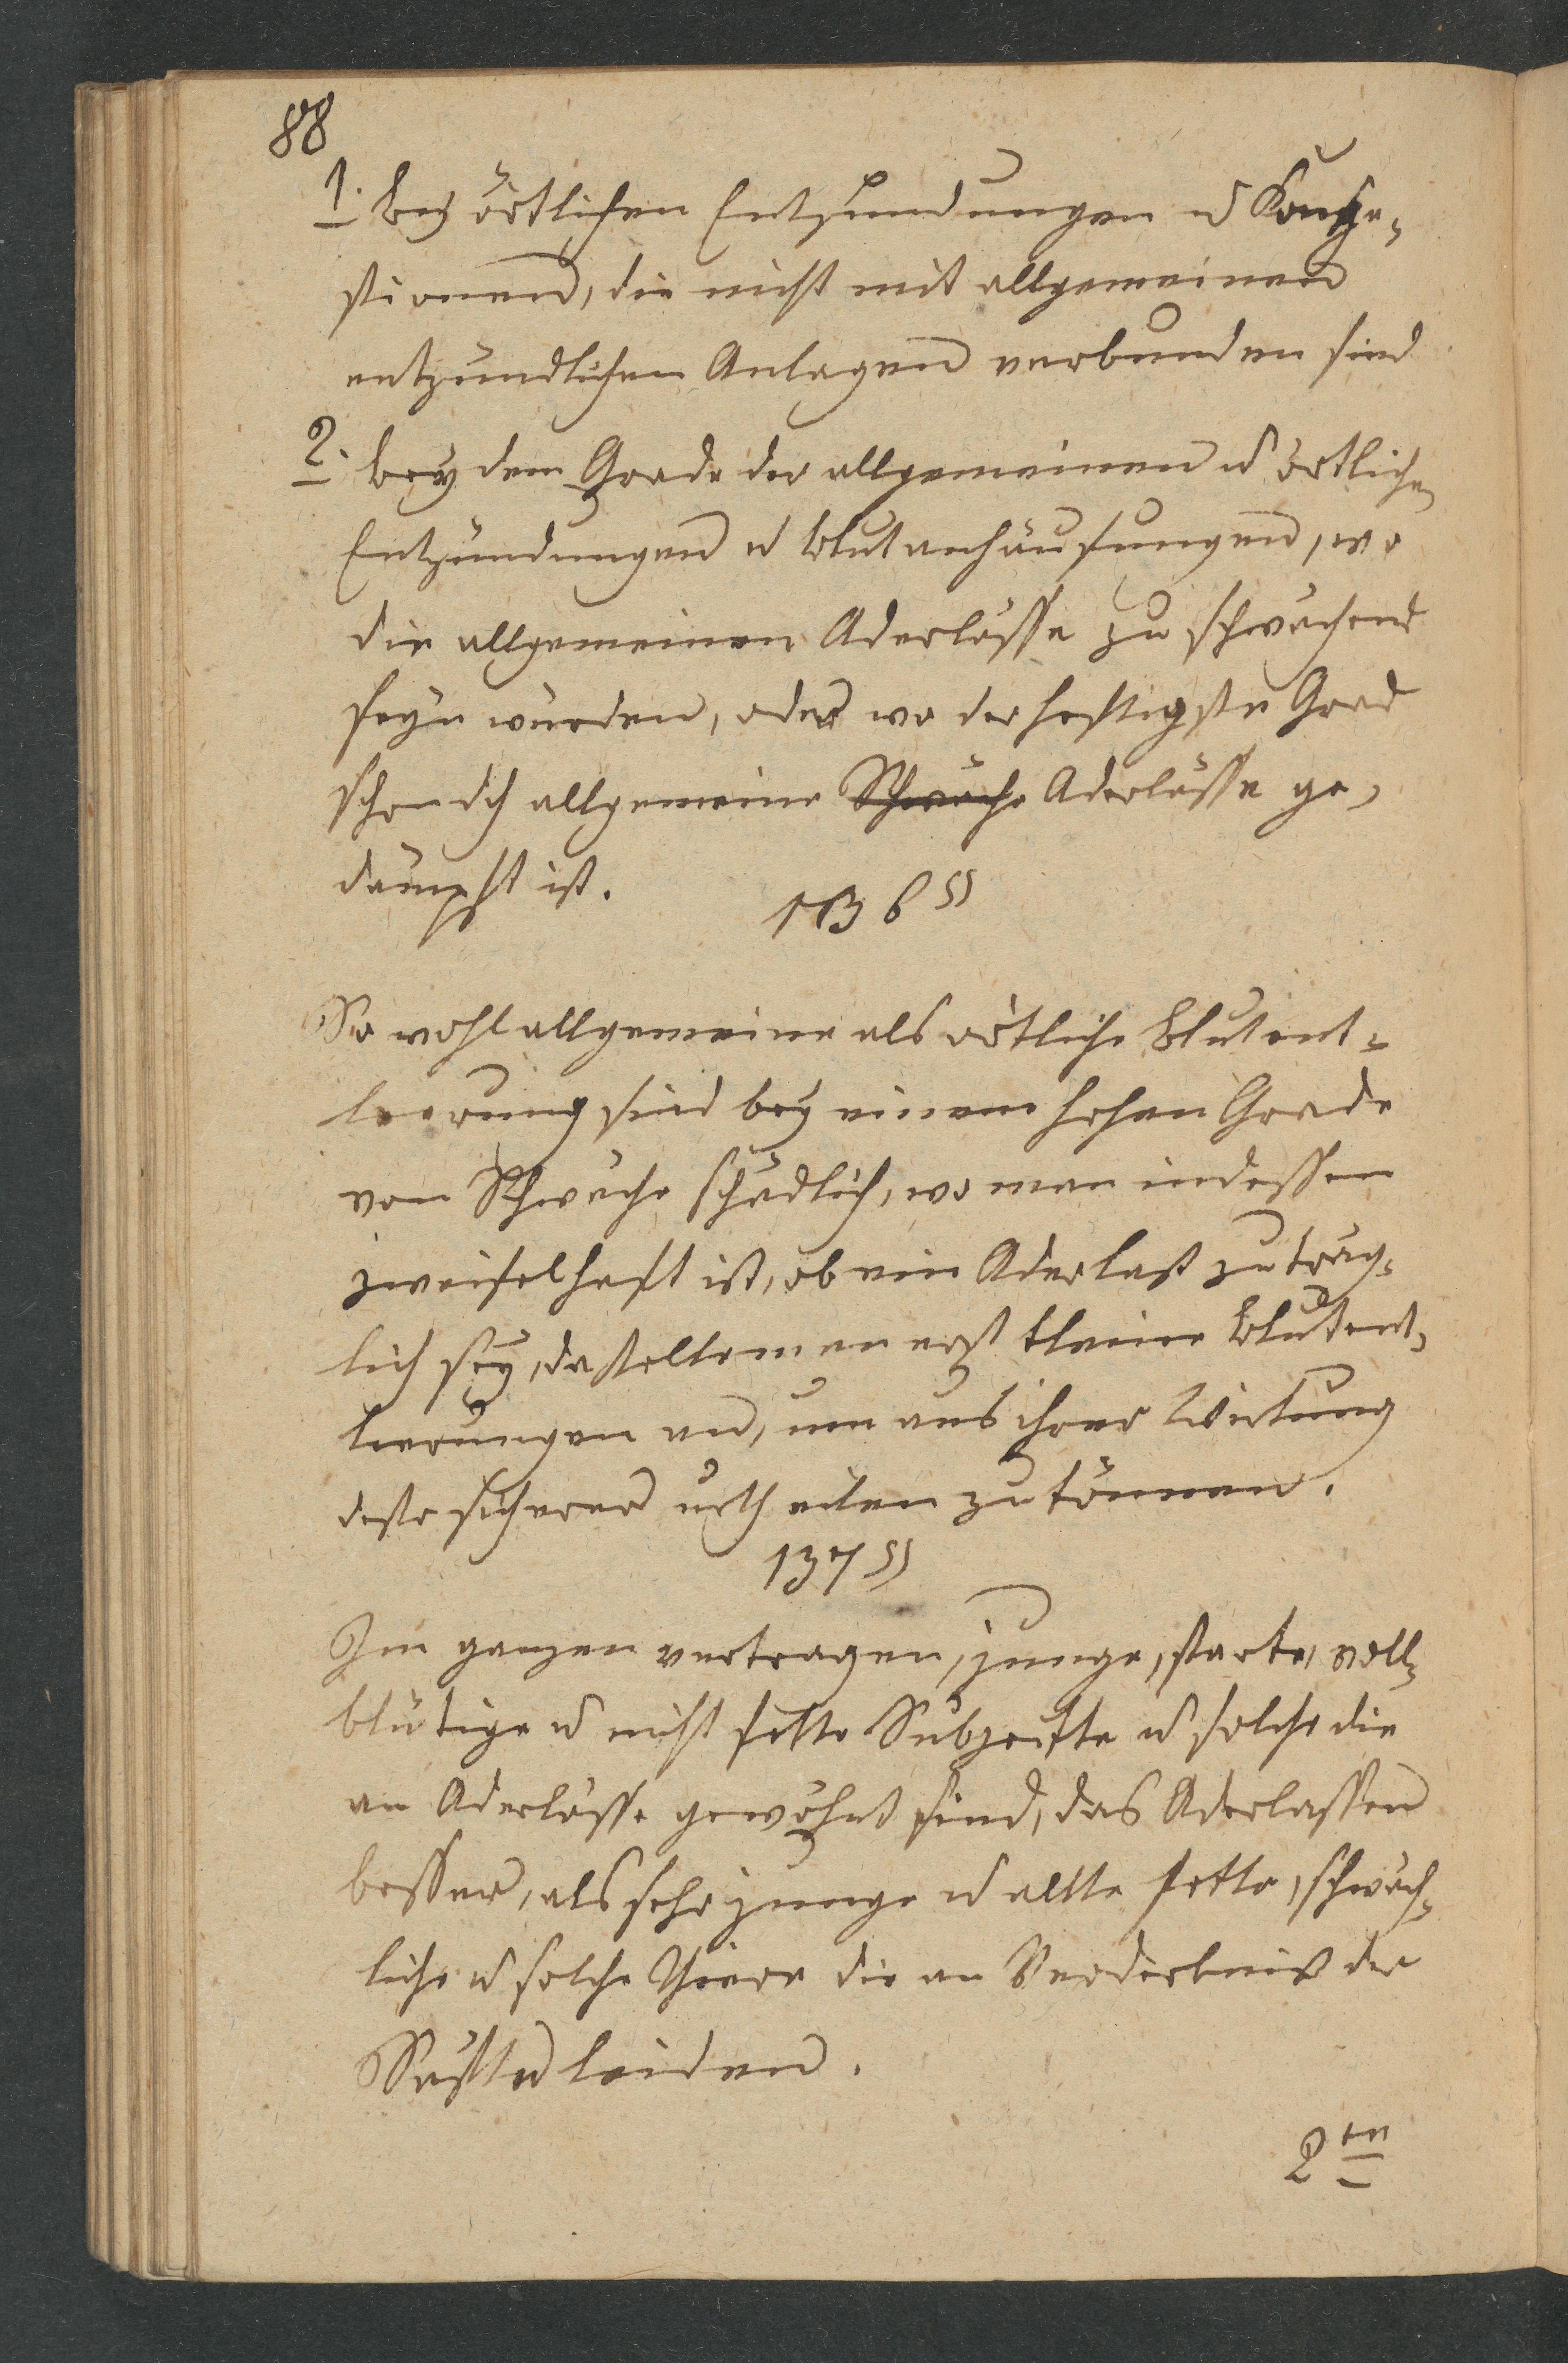 88
1. bey örtlichen Entzündungen u Konge-
stionen, die nicht mit allgemeinen
entzündlichen Anlagen verbunden sind
2. bey dem Grade der allgemeinen u örtlichen
Entzündungen u Blutanhäufungen, wo
die allgemeinen Aderlässe zu schwächend
seyn würden, oder wo der heftigste Grad
schon dch allgemeine Schwäche Aderlässe ge-
dämpft ist.
136 §
So wohl allgemeine als örtliche Blutent-
leerung sind bey einem hohen Grade
von Schwäche schädlich, wo man indessen
zweifelhaft ist, ob ein Aderlaß zuträg-
lich sey, da stelle man erst kleine Blutent-
leerungen an, um aus ihrer Wirkung
desto sicherer urtheilen zu können.
137 §
Im ganzen vertragen, junge, starke, voll-
blütige u nicht fette Subjeckte u solche die
an Aderlässe gewöhnt sind, das Aderlassen
besser, als sehr junge u allte fette, schwäch-
liche u solche Thiere die an Verderbniß der
Säfte leiden.
2ten